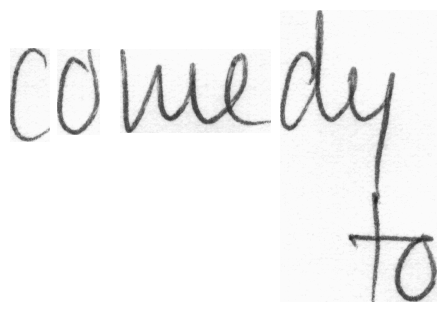 comedy
to